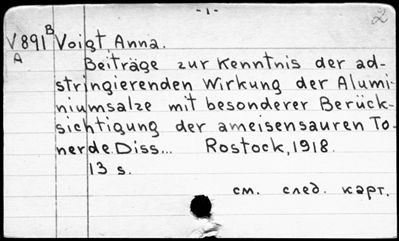 - 1 -
2
V 891 B Voigt, Anna.
A
Beiträge zur Kenntnis der ad-
stringierenden Wirkung der Alumi-
niumsalze mit besonderer Berück-
sichtigung der ameisensauren To-
nerde. Diss... Rostock, 1918.
13 s.
см. след. карт.